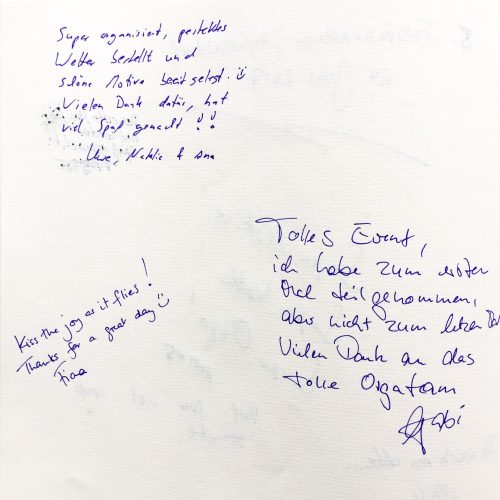 Super organisiert, perfektes
Wetter bestellt und
schöne Motive bereitgelegt.
Vielen Dank dafür, hat
viel Spaß gemacht!!
Uwe, Natalie & Ana
Tolles Event,
ich habe zum ersten
Mal teilgenommen,
aber nicht zum letzten
Vielen Dank an das
tolle Orgateam
Gabi
Kiss the joy as it flies!
Thanks for a great day